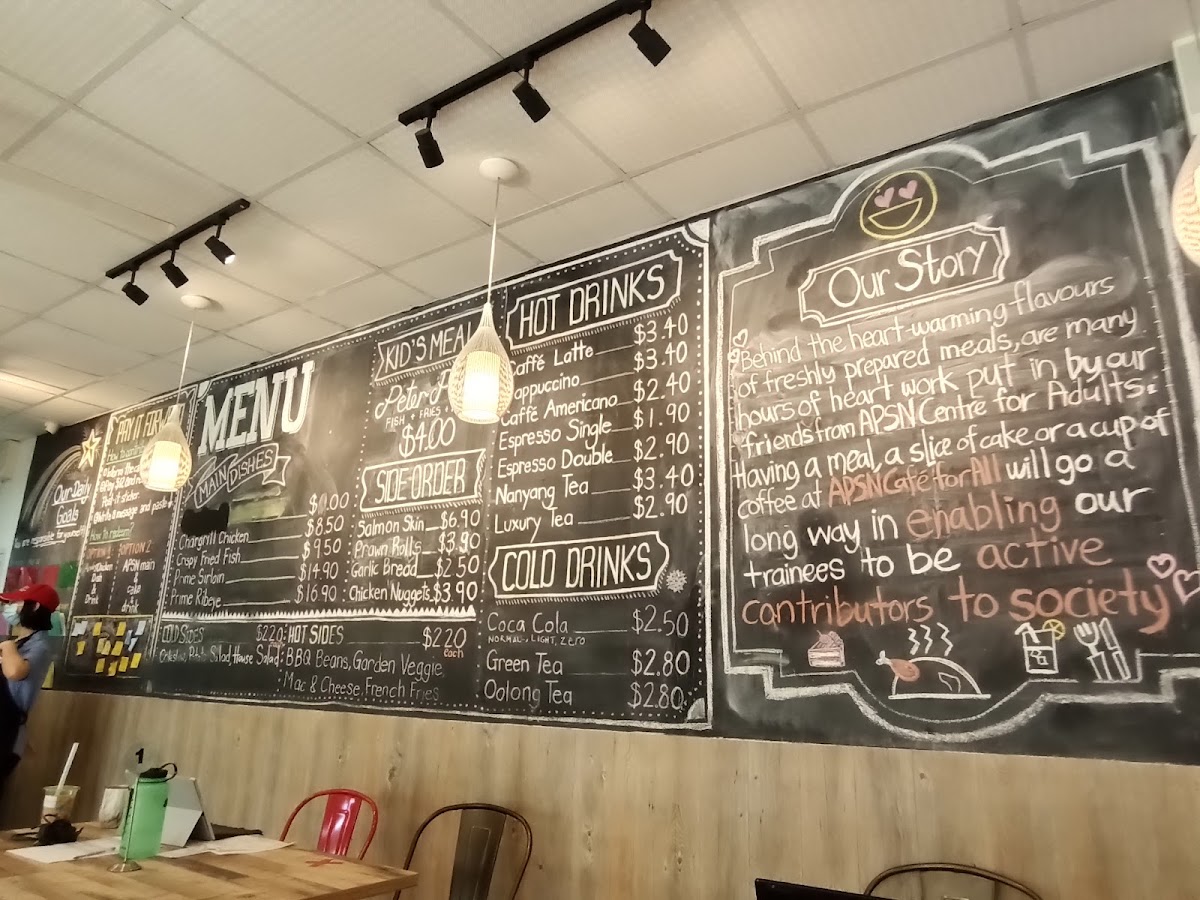 Our Daily
Goals
PAY IT
OPTION 2
APSN main
&
cake
drink
MENU
MAIN DISHES
$8.50
Chargrill Chicken $9.50
Crispy Fried Fish
Prime Sirloin $14.90
Prime Ribeye $16.90
COLD SIDES $2.20
Salad, House Salad
HOT SIDES $2.20
each
BBQ Beans, Garden Veggie,
Mac & Cheese, French Fries
KID'S MEAL
Peter
FISH + FRIES +
$4.00
SIDE ORDER
Salmon Skin $6.90
Prawn Rolls $3.90
Garlic Bread $2.50
Chicken Nuggets $3.90
HOT DRINKS
Caffé Latte $3.40
Cappuccino $3.40
Caffé Americano $2.40
Espresso Single $1.90
Espresso Double $2.90
Nanyang Tea $3.40
Luxury Tea $2.90
COLD DRINKS
Coca Cola $2.50
NORMAL, LIGHT, ZERO
Green Tea $2.80
Oolong Tea $2.80
Our Story
Behind the heart-warming flavours
of freshly prepared meals, are many
hours of heart work put in by our
friends from APSN Centre for Adults.
Having a meal, a slice of cake or a cup of
coffee at APSN Café for All will go a
long way in enabling our
trainees to be active
contributors to society
1